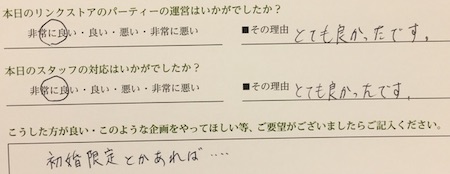 本日のリンクストアのパーティーの運営はいかがでしたか？
非常に良い・良い・悪い・非常に悪い ■その理由 とても良かったです。
本日のスタッフの対応はいかがでしたか？
非常に良い・良い・悪い・非常に悪い ■その理由 とても良かったです。
こうした方が良い・このような企画をやってほしい等、ご要望がございましたらご記入ください。
初婚限定とかあれば‥‥